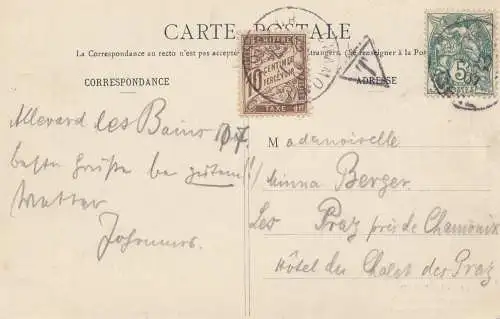 CARTE POSTALE
La Correspondance au recto n'est pas acceptée Étrangers. (Se renseigner à la Poste)
CORRESPONDANCE
ADRESSE
CHIFFRE
10 CENTIMES
À PERCEVOIR
TAXE
T
5
Allevard les Bains 07
beste Grüße bei gutem!!
Wetter
Johannes.
Mademoiselle
Minna Berger
Les Praz près de Chamonix
Hôtel du Chalet des Praz